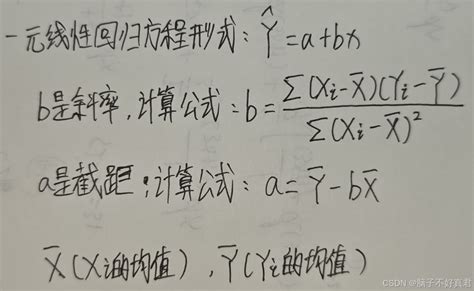 一元线性回归方程形式：Ŷ=a+bx
b是斜率，计算公式：b=∑(Xi-X̅)(Yi-Y̅)/∑(Xi-X̅)²
a是截距；计算公式：a=Y̅-bX̅
X̅(Xi的均值)，Y̅(Yi的均值)
CSDN @脑子不好真君